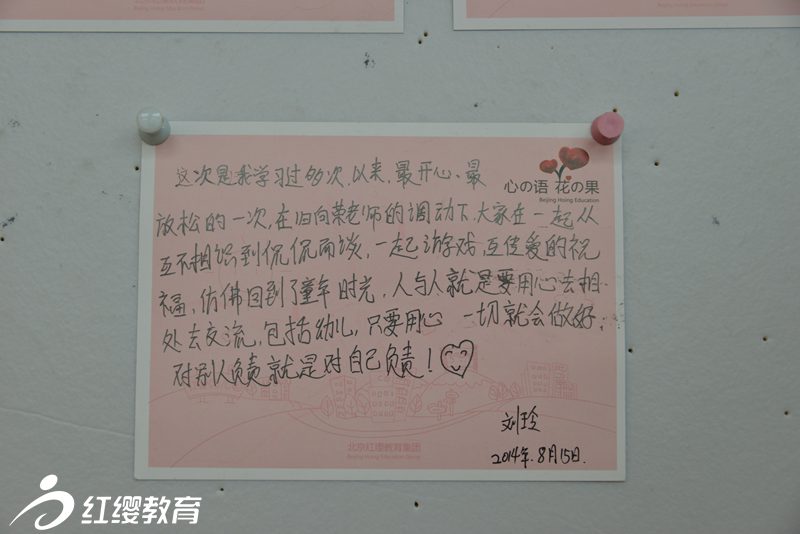 心の语 花の果
Beijing Hoing Education
这次是我学习过多次,以来,最开心、最
放松的一次,在旧向荣老师的调动下,大家在一起从
互不相识到侃侃而谈,一起游戏,互传爱的祝
福,仿佛回到了童年时光,人与人就是要用心去相
处去交流,包括幼儿,只要用心 一切就会做好;
对别人负责就是对自己负责!
刘玲
2014年.8月15日.
北京红缨教育集团
Beijing Hoing Education Group
红缨教育